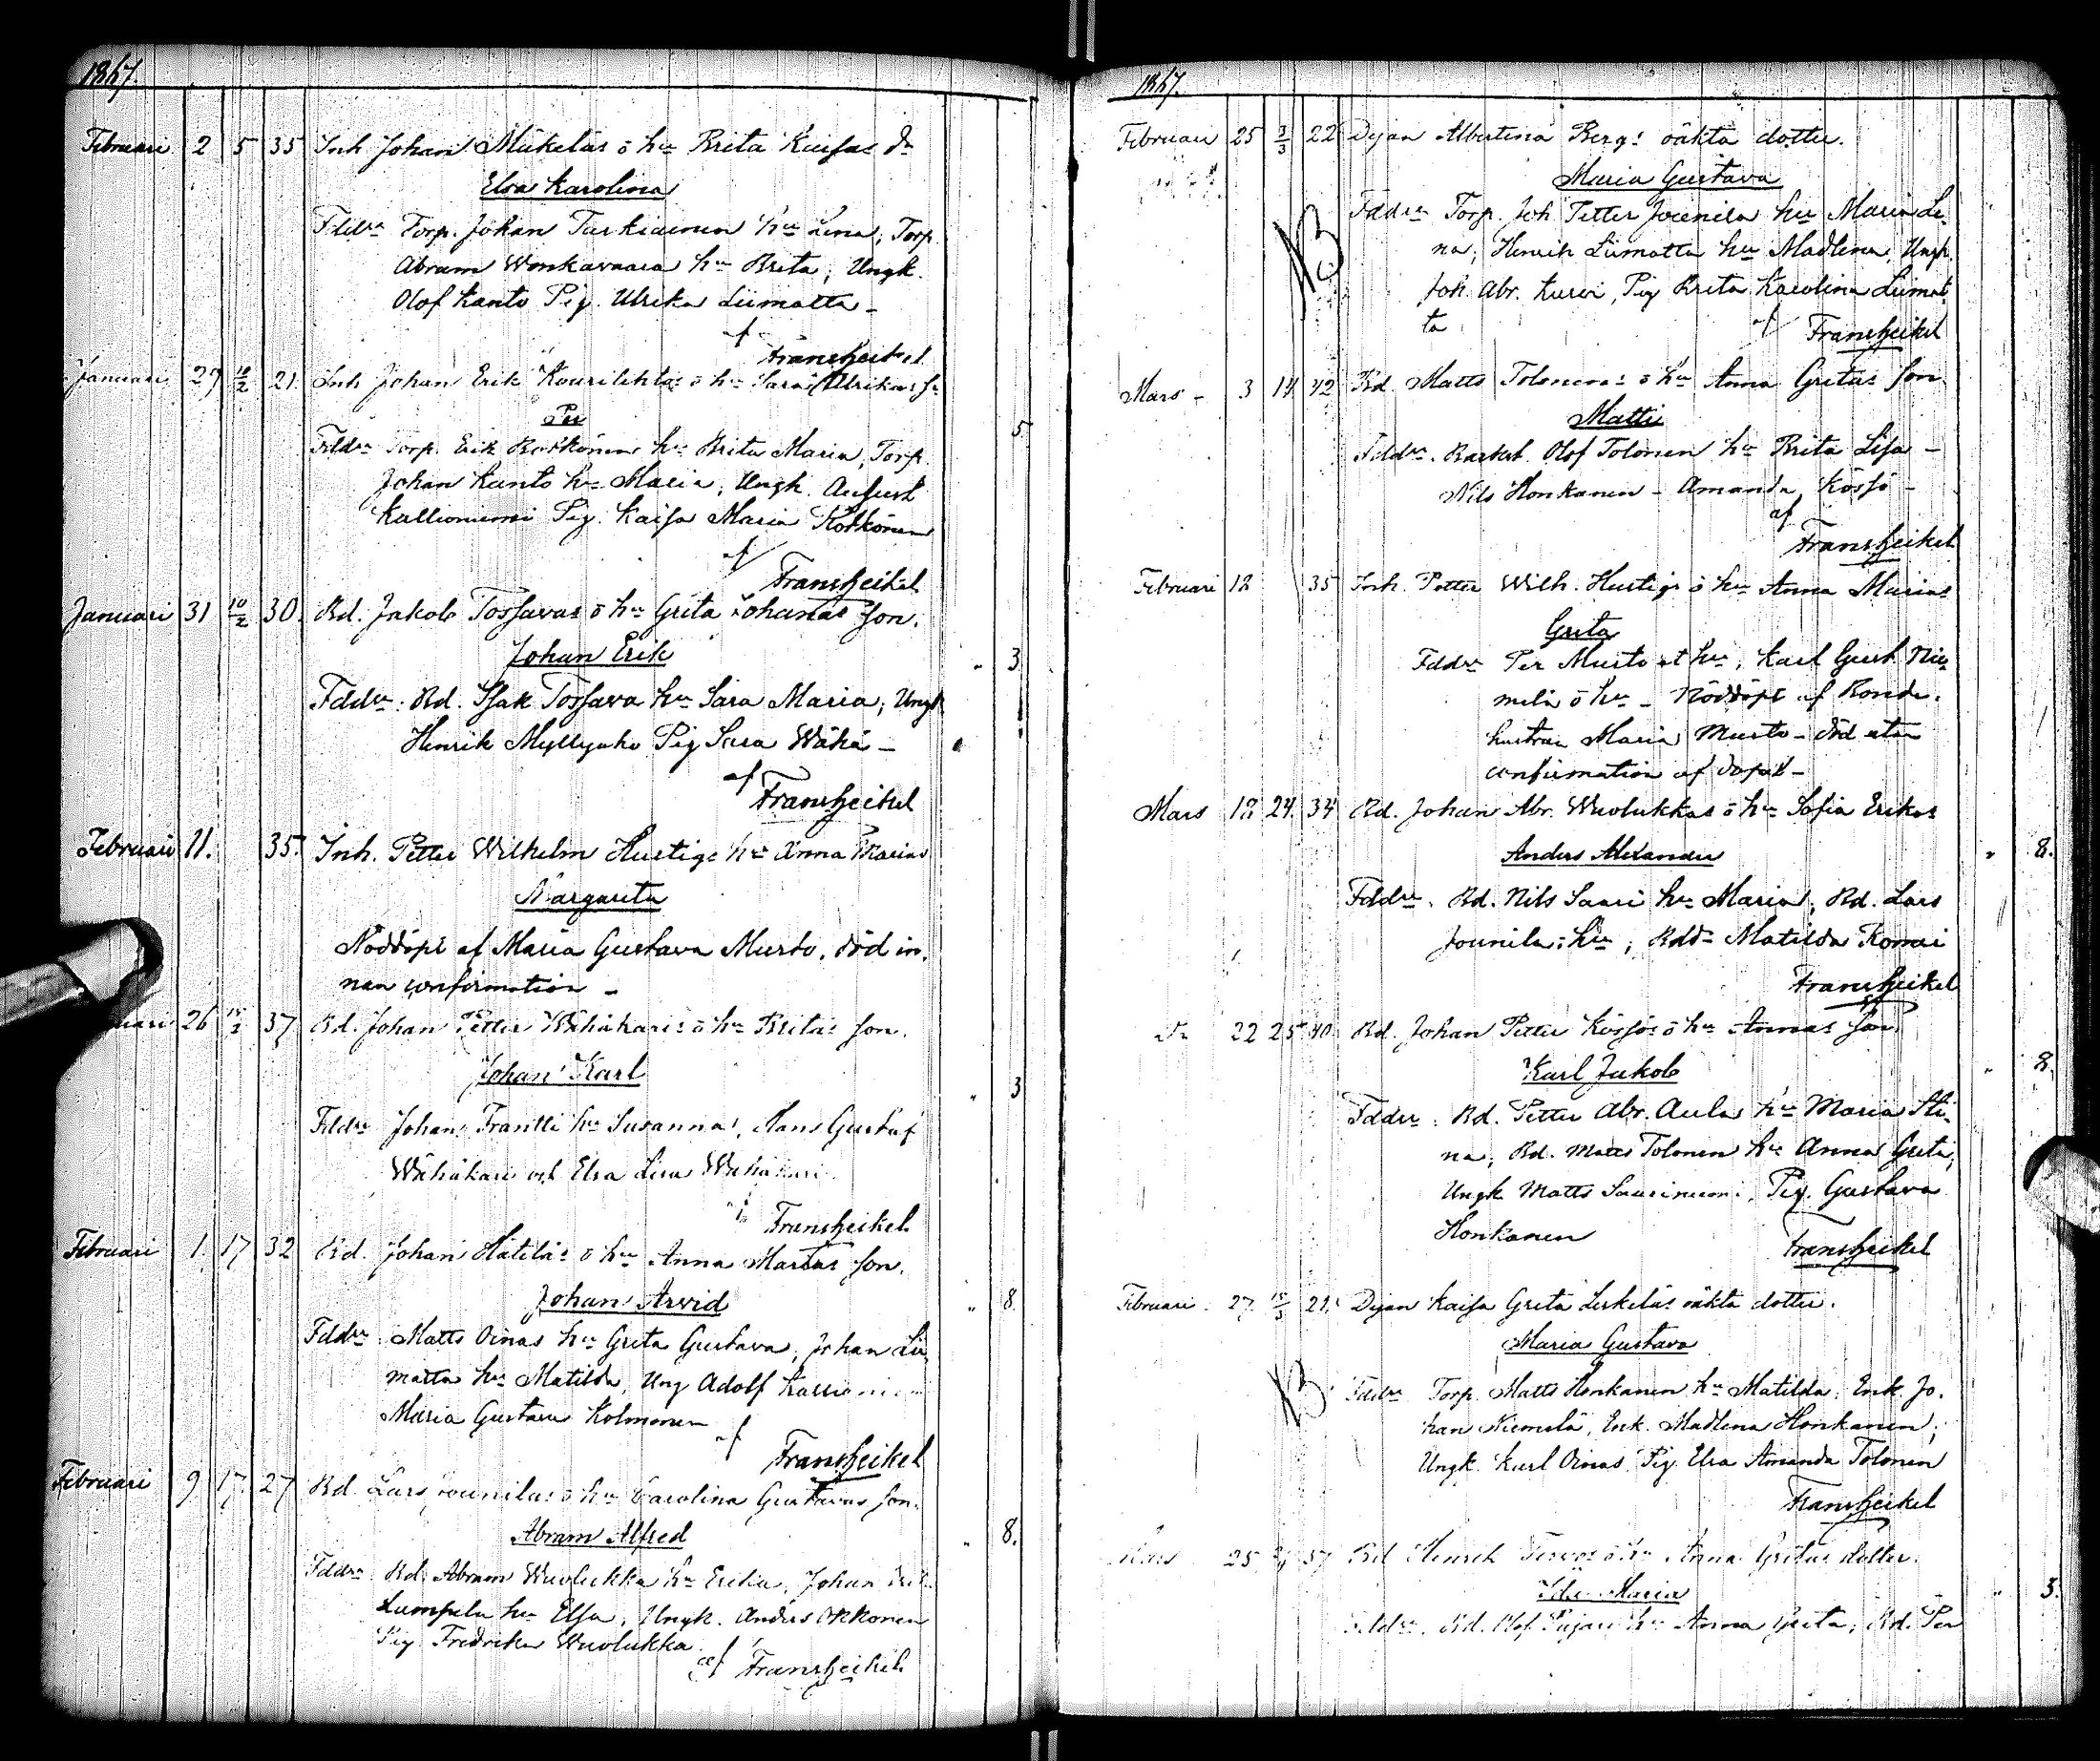 1867.
Februari 2 5 35 Inh Johan Mäkeläs o hu Brita Kaisas dr
Elsa Karolina
Fddrar Torp. Johan Turkiainen hu Lena, Torp.
Abram Wonkavaara hu Brita, Ungk.
Olof Kanto Pig. Ulrika Liimatta –
af
Franszeikel
Januari 27 10/2 21. Inh Johan Erik Kourilehtos o hu Sara Ulrikas
Per
Fddrar Torp. Erik hu Brita Maria, Torp.
Johan Kanto hu Maria, Ungk. August
Kallioniemi Pig. Kaisa Maria Kokkonen
5
af
Franszeikel
Januari 31 10/2 30. Bd. Jakob Tossavas o hu Greta Johanas son.
Johan Erik
" 3
Fddrar. Bd. Isak Tossava hu Sara Maria, Ungk
Henrik Myllyaho Pig Sara Wähä –
af
Franszeikel
Februari 11. 35. Inh. Petter Wilhelm Hustigs hu Anna Marias
Margareta
Nöddöpt af Maria Gustava Mursto, död in,
nan confirmation –
26 15/2 37 Bd. Johan Petter Wähäkaris o hu Britas son.
Johan Karl
" 3
Fddrar Johan Frantti hu Susanna, Hans Gustaf
Wähäkari och Elsa Lisa Wähäkari
Franszeikel
Februari 1. 17 32 Bd. Johan Hätiläs o hu Anna Marias son.
Johan Arvid
" 8.
Fddrar Matts Oinas hu Greta Gustava, Johan Lii,
matta hu Matilda, Ung Adolf
Maria Gustava Kolmonen
af
Franszeikel
Februari 9 17. 27 Bd. Lars Jounilas o hu Carolina Gustavas son.
Abram Alfred
" 8.
Fddrar Bd. Abram Wuolukka hu Erika, Johan
Lumpela hu Elsa, Ungk. Anders Okkonen
Pig. Fredrika Wuolukka.
af Franszeikel
1867.
Februari 25 3/3 22 Dejan Albertina Bergs oäkta dotter.
Maria Gustava
Fddrar Torp. Joh. Petter Jounila hu Maria Le,
na, Henrik Liimatta hu Madlena, Ungk.
Joh. Abr. Kurvi, Pig Brita Karolina Liimat
ta af Franszeikel
Mars – 3 14 42 Bd. Matts Tolonens o hu Anna Gretas son
Matti
Fddrar. Olof Tolonen hu Brita Lisa –
Nils Honkanen – Amanda Kössö –
af
Franszeikel
Februari 18 35 Inh. Petter Wilh. Hustigs o hu Anna Marias
Greta
Fddrar Per Mursto et hu, Karl Gust. Nie,
melä o hu – Nöddöpt af Bonde,
hustrun Maria Mursto – död utan
confirmation af dopet –
Mars 18 24. 34 Bd. Johan Abr. Wuolukkas o hu Sofia Erikas
Anders Alexander
" 8.
Fddrar. Bd. Nils Saari hu Maria, Bd. Lars
Jounila o hu, Bddr Matilda Konai
Franszeikel
dr 22 25 40. Bd. Johan Petter Kössös o hu Annas son
Karl Jakob
" 8.
Fddrar. Bd. Petter Abr. Aula hu Maria Sti,
na, Bd. Matts Tolonen hu Anna Greta,
Ungk Matts Saariniemi, Pig. Gustava
Honkanen
Franszeikel
Februari 27. 15/3 21. Dejan Kaisa Greta Leskeläs oäkta dotter.
Maria Gustava
Fddrar Torp. Matts Honkanen hu Matilda, Enk. Jo,
han Niemelä, Enk. Madlena Honkanen,
Ungk. Karl Oinas Pig. Elsa Amanda Tolonen
Franszeikel
Mars 25 37 Bd Henrik o hu Anna Gretas dotter
Maria
" 3.
Fddrar. Bd. Olof hu Anna Greta, Bd. Per